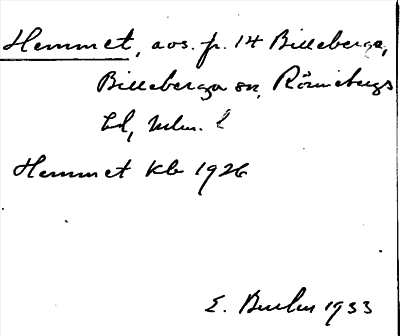 Hemmet, avs. fr. 14 Billeberga,
Billeberga sn, Rönnebergs
hd, Mlm. l
Hemmet Kb 1926
E. 1933